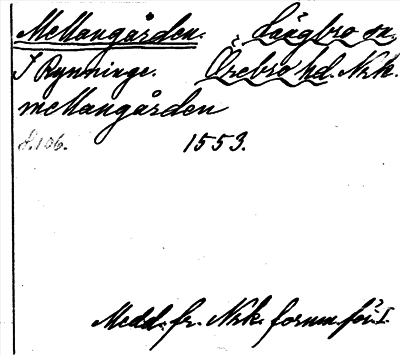 Mellangården. Längbro sn,
I Rynninge. Örebro hd. Nrk.
mellangården
s. 106. 1553.
Medd. fr. Nrk. fornm. för. I.